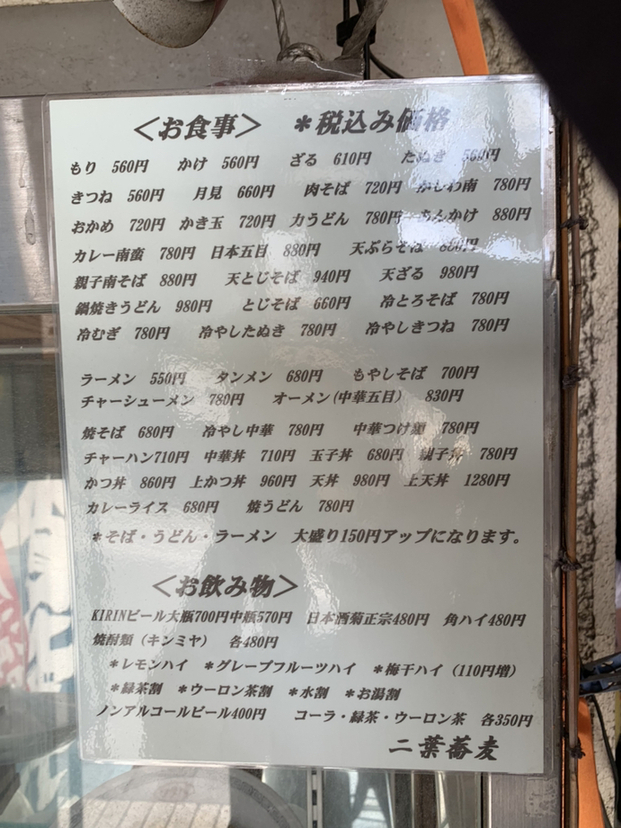 ＜お食事＞ ＊税込み価格
もり 560円 かけ 560円 ざる 610円 たぬき 560円
きつね 560円 月見 660円 肉そば 720円 かしわ南 780円
おかめ 720円 かき玉 720円 力うどん 780円 あんかけ 880円
カレー南蛮 780円 日本五目 880円 天ぷらそば 880円
親子南そば 880円 天とじそば 940円 天ざる 980円
鍋焼きうどん 980円 とじそば 660円 冷とろそば 780円
冷むぎ 780円 冷やしたぬき 780円 冷やしきつね 780円
ラーメン 550円 タンメン 680円 もやしそば 700円
チャーシューメン 780円 オーメン(中華五目) 830円
焼そば 680円 冷やし中華 780円 中華つけ麺 780円
チャーハン710円 中華丼 710円 玉子丼 680円 親子丼 780円
かつ丼 860円 上かつ丼 960円 天丼 980円 上天丼 1280円
カレーライス 680円 焼うどん 780円
＊そば・うどん・ラーメン 大盛り150円アップになります。
＜お飲み物＞
KIRINビール大瓶700円中瓶570円 日本酒菊正宗480円 角ハイ480円
焼酎類（キンミヤ） 各480円
＊レモンハイ ＊グレープフルーツハイ ＊梅干ハイ（110円増）
＊緑茶割 ＊ウーロン茶割 ＊水割 ＊お湯割
ノンアルコールビール400円 コーラ・緑茶・ウーロン茶 各350円
二葉蕎麦